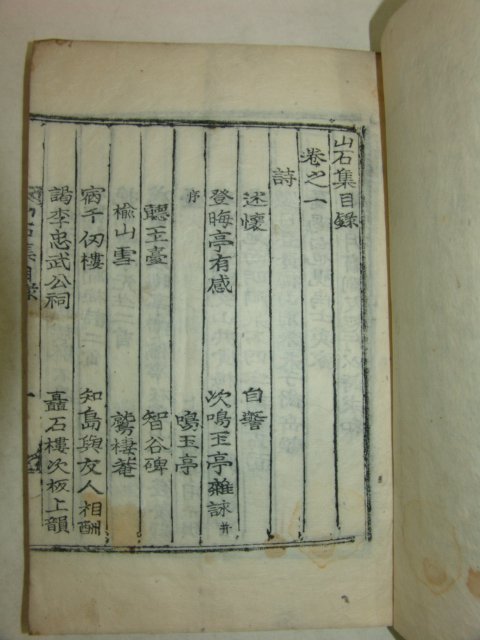 山石集目錄
卷之一
詩
述懷 自警
登晦亭有感 次鳴玉亭雜詠 并
序 鳴玉亭
聽玉臺 智谷碑
楡山雪 鷲棲菴
宿千仞樓 知島與友人相酬
謁李忠武公祠 矗石樓次板上韻
山石集目錄 一